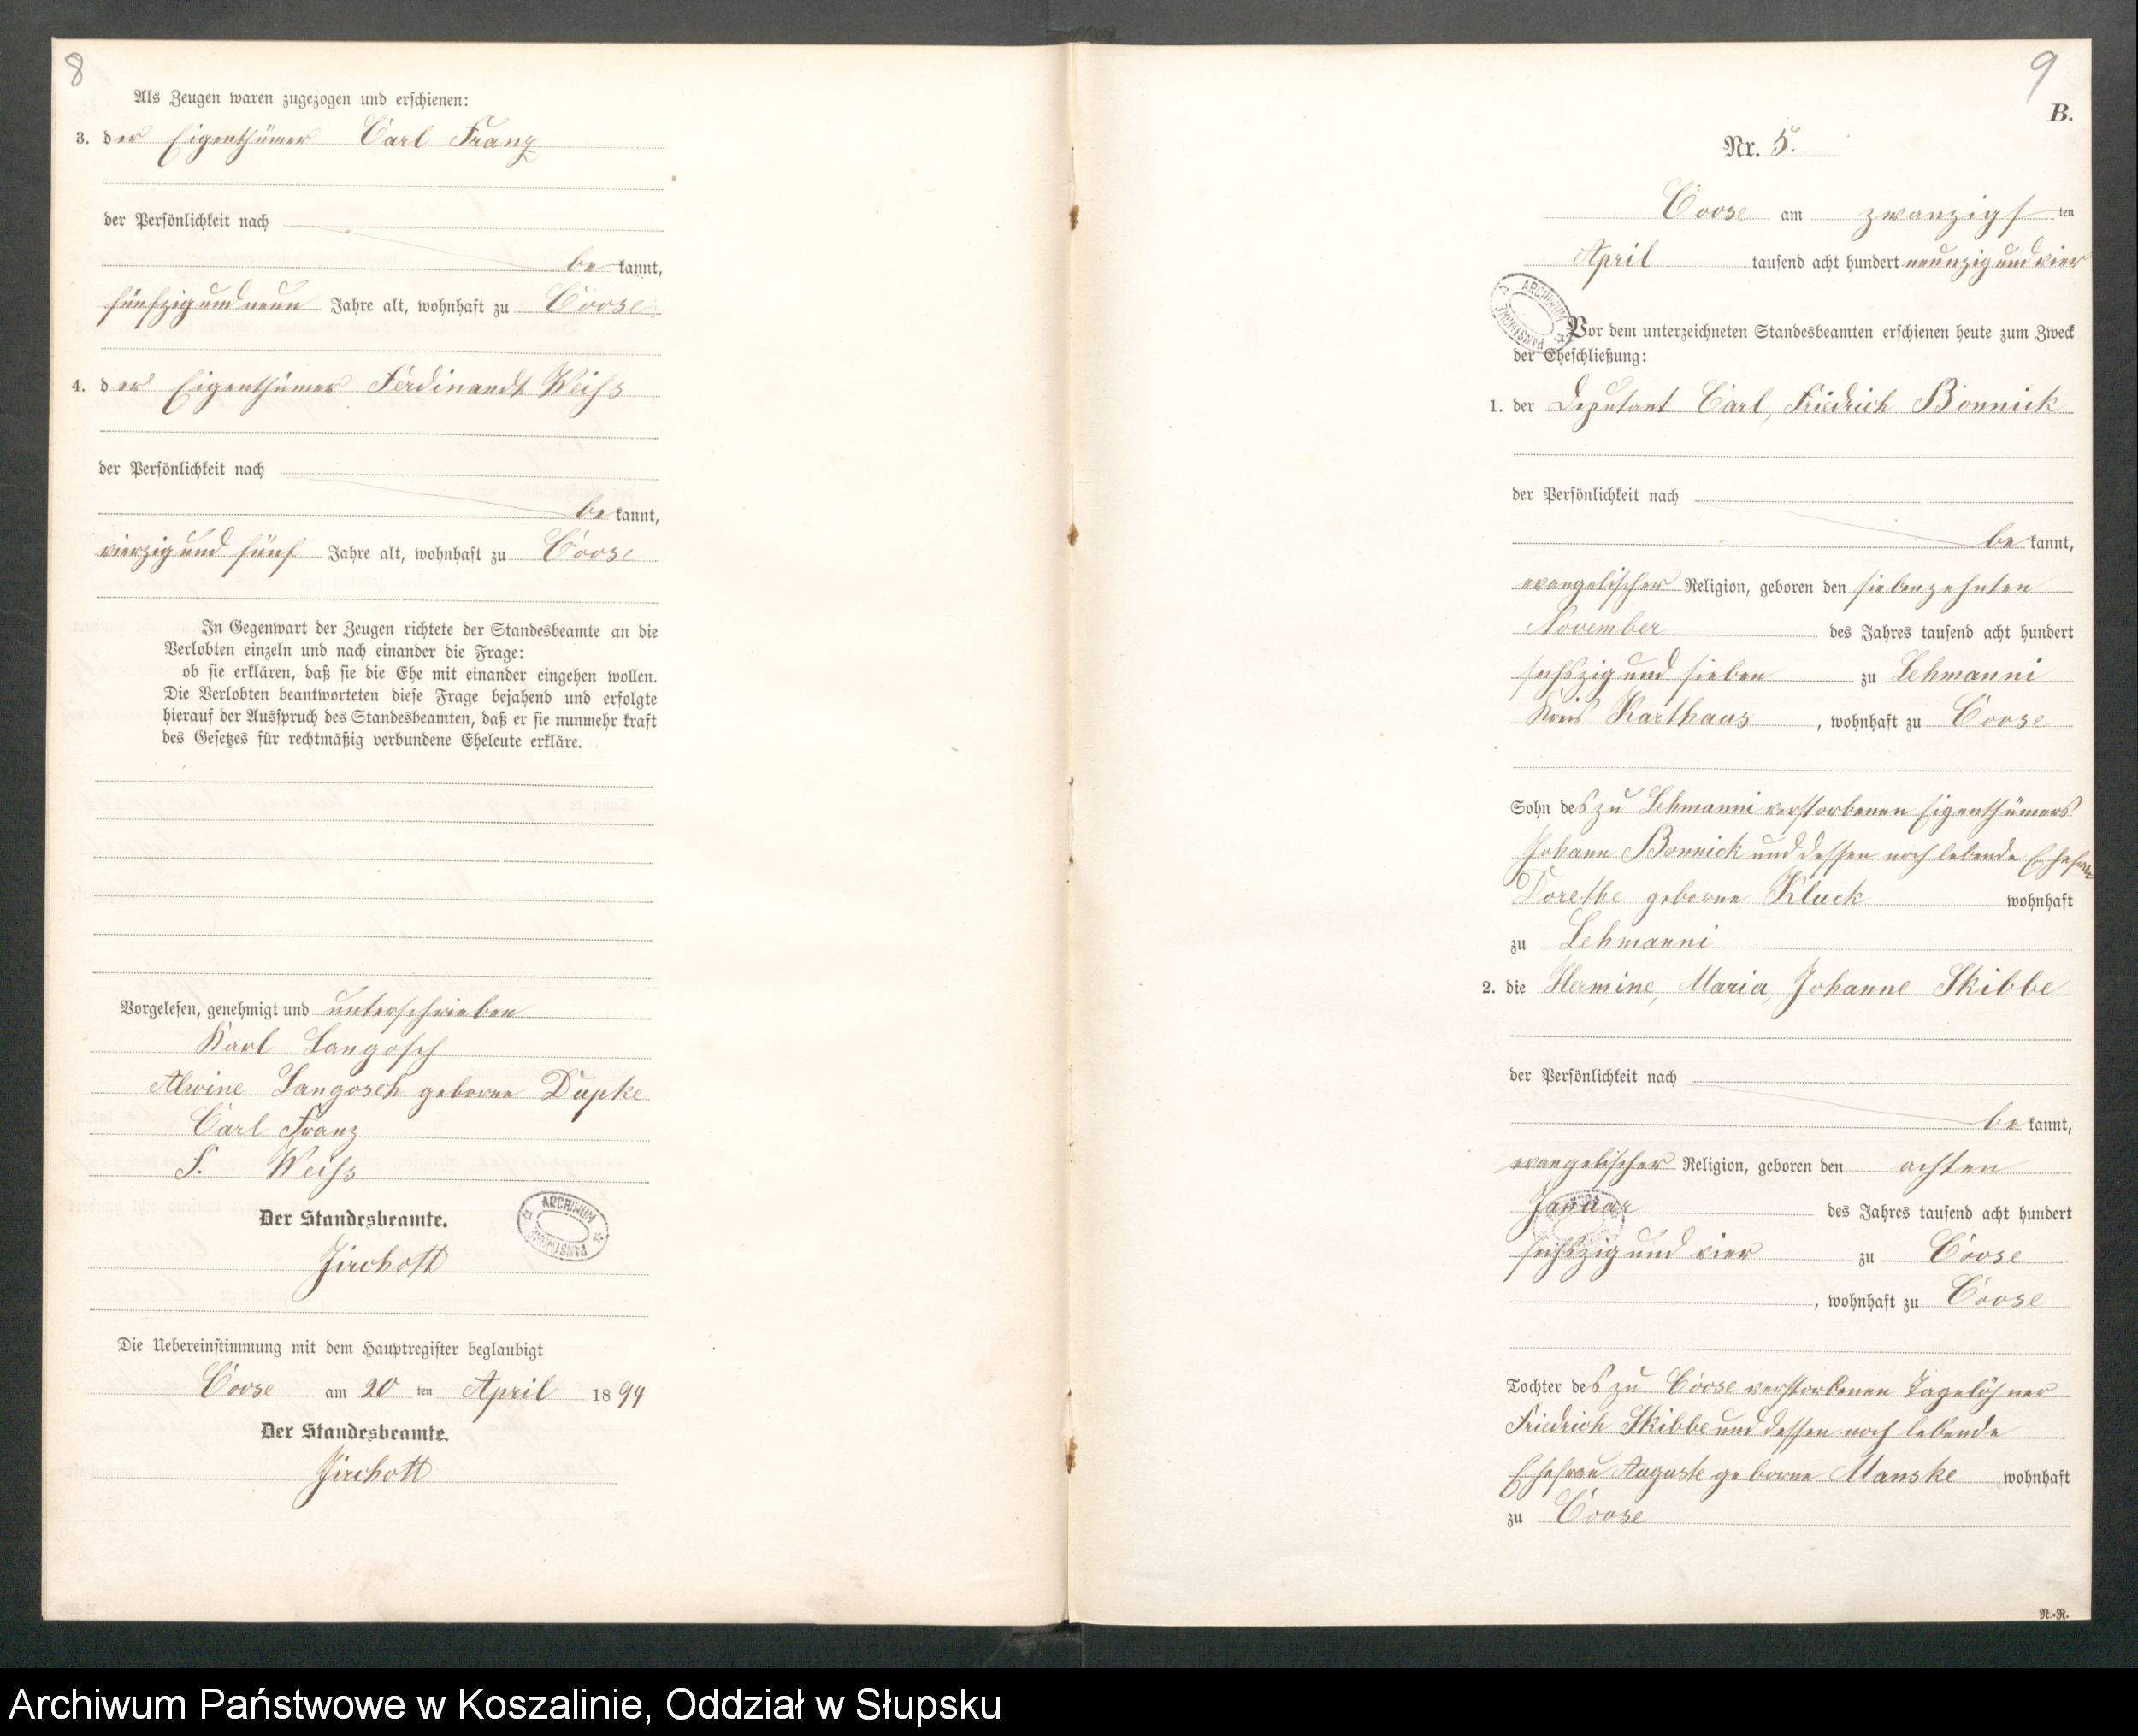 8
Als Zeugen waren zugezogen und erschienen:
3. der Eigenthümer Carl Franz
der Persönlichkeit nach
be kannt,
fünfzig und neun Jahre alt, wohnhaft zu Coose
4. der Eigenthümer Ferdinandt Weiß
der Persönlichkeit nach
be kannt,
vierzig und fünf Jahre alt, wohnhaft zu Coose
In Gegenwart der Zeugen richtete der Standesbeamte an die
Verlobten einzeln und nach einander die Frage:
ob sie erklären, daß sie die Ehe mit einander eingehen wollen.
Die Verlobten beantworteten diese Frage bejahend und erfolgte
hierauf der Ausspruch des Standesbeamten, daß er sie nunmehr kraft
des Gesetzes für rechtmäßig verbundene Eheleute erkläre.
Vorgelesen, genehmigt und unterschrieben
Karl Langosch
Alwine Langosch geborne Dupke
Carl Franz
F. Weiß
Der Standesbeamte.
Jirchott
ARCHIWUM PAŃSTWOWE
Die Uebereinstimmung mit dem Hauptregister beglaubigt
Coose am 20 ten April 18 94
Der Standesbeamte.
Jirchott
9
B.
Nr. 5.
Coose am zwanzigsten
April tausend acht hundert neunzig und vier
ARCHIWUM PAŃSTWOWE
Vor dem unterzeichneten Standesbeamten erschienen heute zum Zweck
der Eheschließung:
1. der Deputant Carl, Friedrich Bonnick
der Persönlichkeit nach
be kannt,
evangelischer Religion, geboren den siebenzehnten
November des Jahres tausend acht hundert
sechszig und sieben zu Lehmanni
Kreis Karthaus, wohnhaft zu Coose
Sohn des zu Lehmanni verstorbenen Eigenthümers
Johann Bonnick und dessen noch lebende Ehefrau
Dorethe geborne Kluck wohnhaft
zu Lehmanni
2. die Hermine, Maria, Johanne Skibbe
der Persönlichkeit nach
be kannt,
evangelischer Religion, geboren den achten
Januar des Jahres tausend acht hundert
sechszig und vier zu Coose
, wohnhaft zu Coose
Tochter des zu Coose verstorbenen Tagelöhner
Friedrich Skibbe und dessen noch lebende
Ehefrau Auguste geborne Manske wohnhaft
zu Coose
N.-R.
Archiwum Państwowe w Koszalinie, Oddział w Słupsku